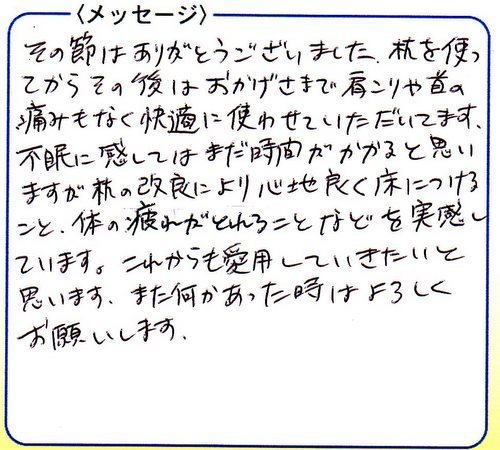 〈メッセージ〉
その節はありがとうございました、枕を使っ
てからその後はおかげさまで肩こりや首の
痛みもなく快適に使わせていただいてます、
不眠に感してはまだ時間がかかると思い
ますが枕の改良により心地良く床につける
こと、体の疲れがとれることなどを実感し
ています。これからも愛用していきたいと
思います、また何かあった時はよろしく
お願いします、